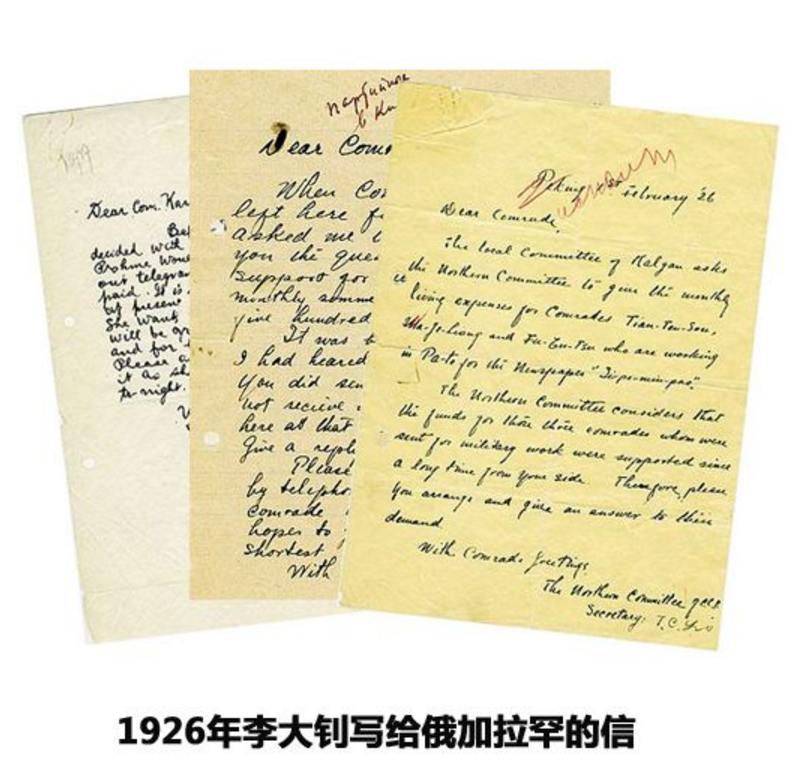 Dear Com. Kar
decided with
our telegram
paid. It is
by present
She want
will be
and for
Please a
it as sh
to-night.
Dear Com
When Co
left here f
asked me
you the que
support for
monthly somme
five hundred
It was
I had heared
You did sen
not recieve
here at that
Give a repl
Please
by telepho
comrade
hopes to
shortest
With
Peking, February '26
Dear Comrade,
The local Committee of Kalgan asks
the Northern Committee to give the monthly
living expenses for Comrades Tian-Ten-Son,
and Fu-En-Tsu who are working
in Pa-to for the Newspaper
The Northern Committee considers that
the funds for those three comrades whom were
sent for military work were supported since
a long time from your side. Therefore, please
you arrange and give an answer to their
demand.
With Comrade Greetings,
The Northern Committee of CCP
Secretary: T.C.
1926年李大钊写给俄加拉罕的信